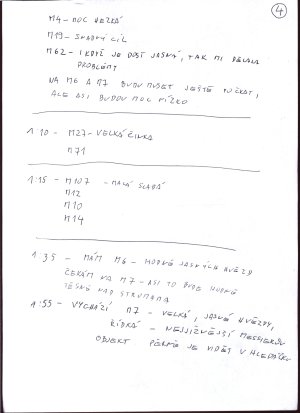 4
M4 - MOC HEZKÁ
M19 - SNADNÝ CÍL
M62 - I KDYŽ JE DOST JASNÁ, TAK MI DĚLALA
PROBLÉMY
NA M6 A M7 BUDU MUSET JEŠTĚ POČKAT,
ALE ASI BUDOU MOC NÍZKO
1:10 - M27 - VELKÁ ČINKA
M71
1:15 - M107 - MALÁ SLABÁ
M12
M10
M14
1:35 - MÁM M6 - HODNĚ JASNÝCH HVĚZD
ČEKÁM NA M7 - ASI TO BUDE HODNĚ
TĚSNĚ NAD STROMAMA
1:55 - VYCHÁZÍ M7 - VELKÁ, JASNÉ HVĚZDY,
ŘÍDKÁ - NEJJIŽNĚJŠÍ MESSIERŮV
OBJEKT - PĚKNĚ JE VIDĚT V HLEDÁČKU